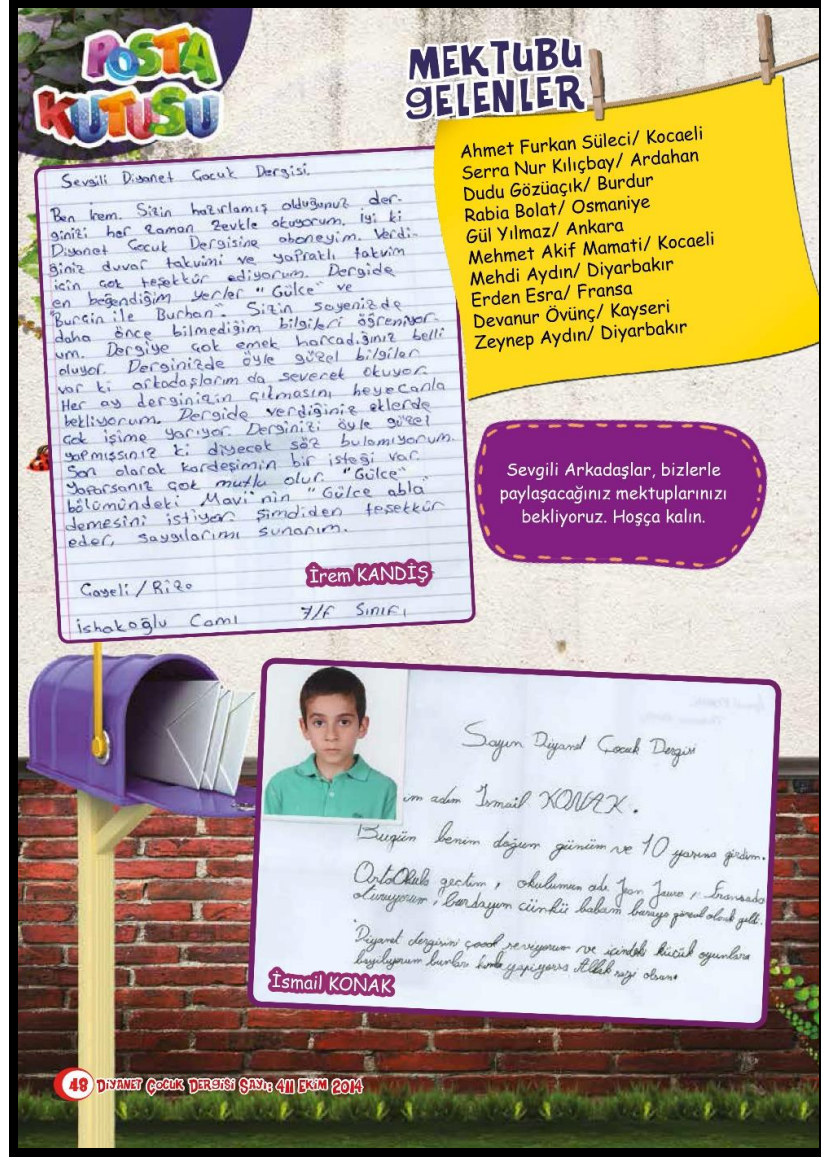 POSTA
KUTUSU
MEKTUBU
GELENLER
Ahmet Furkan Süleci/ Kocaeli
Serra Nur Kılıçbay/ Ardahan
Dudu Gözüaçık/ Burdur
Rabia Bolat/ Osmaniye
Gül Yılmaz/ Ankara
Mehmet Akif Mamati/ Kocaeli
Mehdi Aydın/ Diyarbakır
Erden Esra/ Fransa
Devanur Övünç/ Kayseri
Zeynep Aydın/ Diyarbakır
Sevgili Diyanet Çocuk Dergisi.
Ben İrem. Sizin hazırlamış olduğunuz der-
ginizi her zaman zevkle okuyorum. İyi ki
Diyanet Çocuk Dergisine aboneyim. Verdi-
ğiniz duvar takvimi ve yapraklı takvim
için çok teşekkür ediyorum. Dergide
en beğendiğim yerler "Gülce" ve
"Burçin ile Burhan". Sizin sayenizde
daha önce bilmediğim bilgileri öğreniyor-
um. Dergiye çok emek harcadığınız belli
oluyor. Derginizde öyle güzel bilgiler
var ki arkadaşlarım da severek okuyor.
Her ay derginizin çıkmasını heyecanla
bekliyorum. Dergide verdiğiniz eklerde
çok işime yarıyor. Derginizi öyle güzel
yapmışsınız ki diyecek söz bulamıyorum.
Son olarak kardeşimin bir isteği var.
Yaparsanız çok mutlu olur. "Gülce"
bölümündeki Mavi'nin "Gülce abla"
demesini istiyor. Şimdiden teşekkür
eder, saygılarımı sunarım.
İrem KANDİŞ
Çayeli / Rize
İshakoğlu Cami 7/F Sınıfı
Sevgili Arkadaşlar, bizlerle
paylaşacağınız mektuplarınızı
bekliyoruz. Hoşça kalın.
Sayın Diyanet Çocuk Dergisi
im adım İsmail KONAK.
Bugün benim doğum günüm ve 10 yaşına girdim.
OrtaOkula geçtim, okulumun adı Jean Jaures, Fransada
oturuyorum, burdayım çünkü babam buraya görevli olarak geldi.
Diyanet dergisini çoook seviyorum ve içindeki küçük oyunlara
bayılıyorum bunları kimle yapıyorsa Allah razi olsun.
İsmail KONAK
48 DİYANET ÇOCUK DERGİSİ SAYI: 411 EKİM 2014